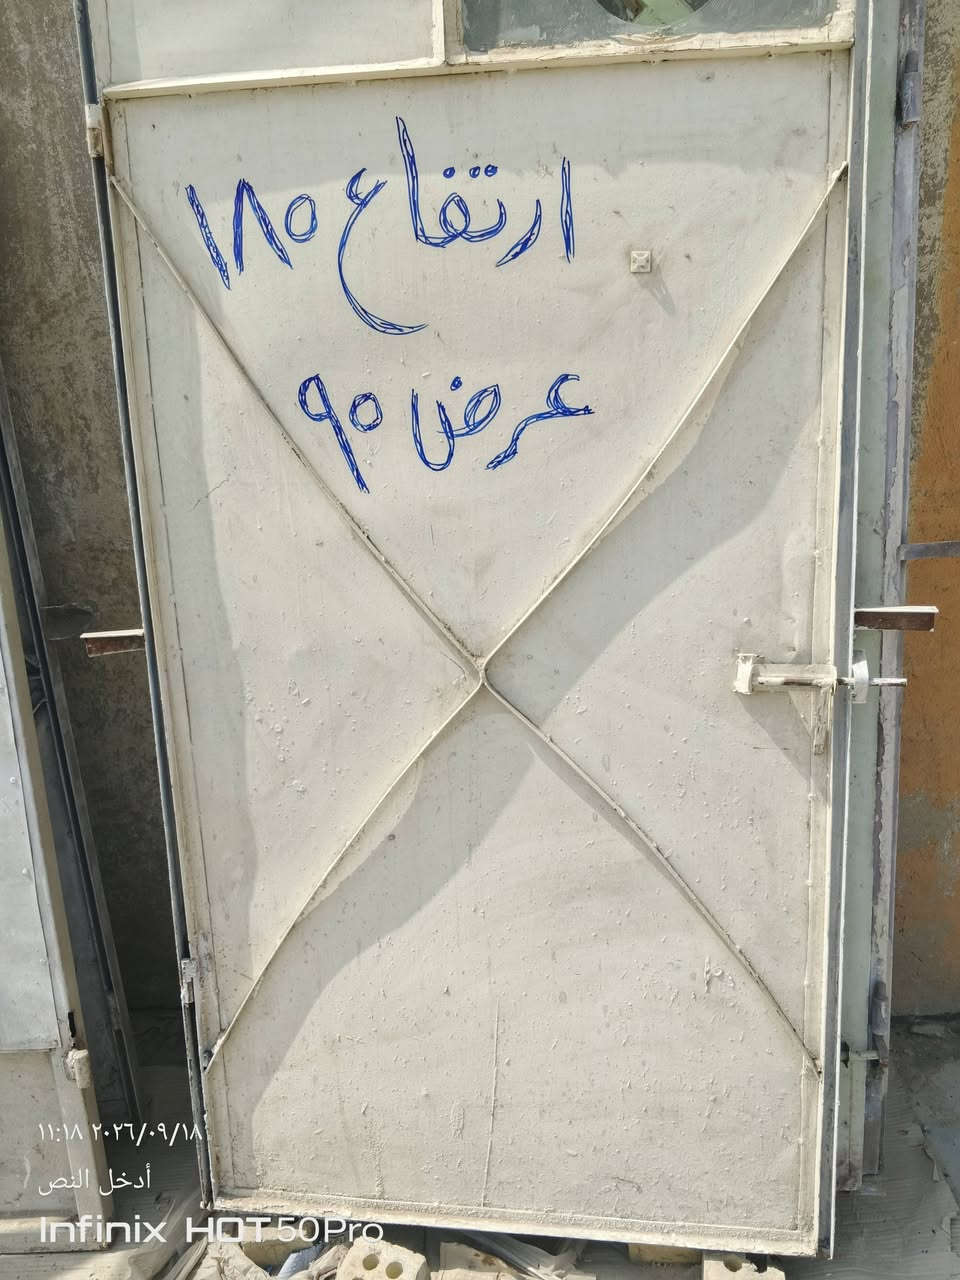 ارتفاع ١٨٥
عرض ٩٥
٢٠٢٦/٠٩/١٨ ١١:١٨
أدخل النص
Infinix HOT 50 Pro